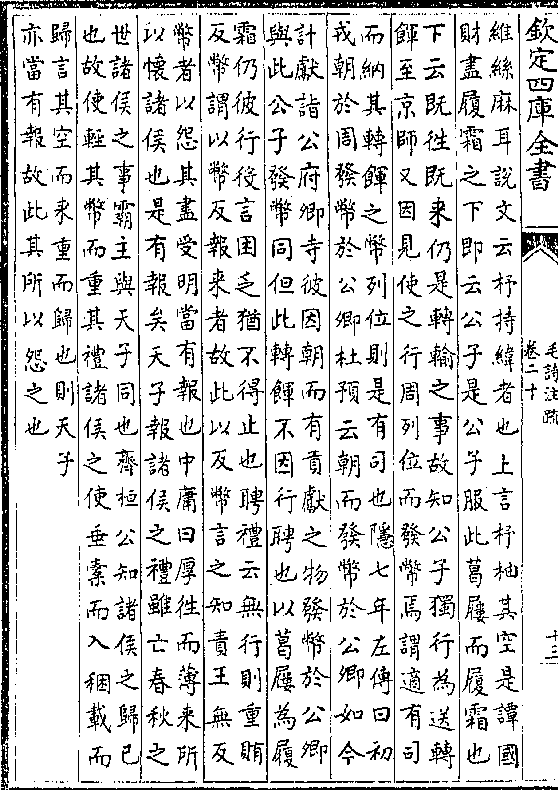 欽定四庫全書
毛詩注疏
卷二十
十三
維絲麻耳說文云杼持緯者也上言杼柚其空是譚國
財盡履霜之下即云公子是公子服此葛屨而履霜也
下云既往既来仍是轉輸之事故知公子獨行為送轉
餫至京師又因見使之行周列位而發幣焉謂適有司
而納其轉餫之幣列位則是有司也隱七年左傳曰初
戎朝於周發幣於公卿杜預云朝而發幣於公卿如今
計獻詣公府卿寺彼因朝而有貢獻之物發幣於公卿
與此公子發幣同但此轉餫不因行聘也以葛屨為履
霜仍彼行役言困乏猶不得止也聘禮云無行則重賄
反幣謂以幣反報来者故此以反幣言之知責王無反
幣者以怨其盡受明當有報也中庸曰厚往而薄来所
以懷諸侯也是有報矣天子報諸侯之禮雖亡春秋之
世諸侯之事霸主與天子同也齊桓公知諸侯之歸已
也故使輕其幣而重其禮諸侯之使垂橐而入稇載而
歸言其空而来重而歸也則天子
亦當有報故此其所以怨之也